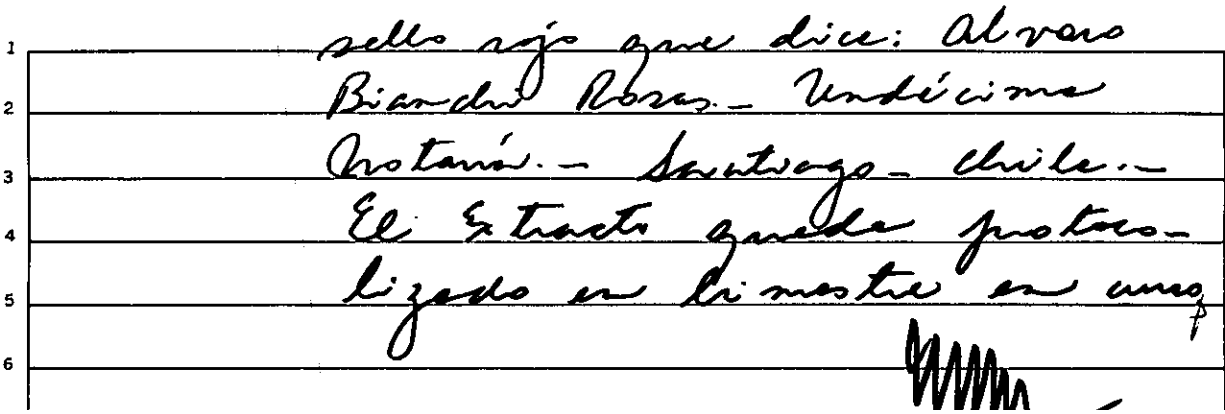 1 sello rojo que dice: Alvaro
2 Bianchi Rosas.- Undécima
3 Notaría.- Santiago- Chile.-
4 El Extracto queda protoco-
5 lizado en bimestre en curso
6